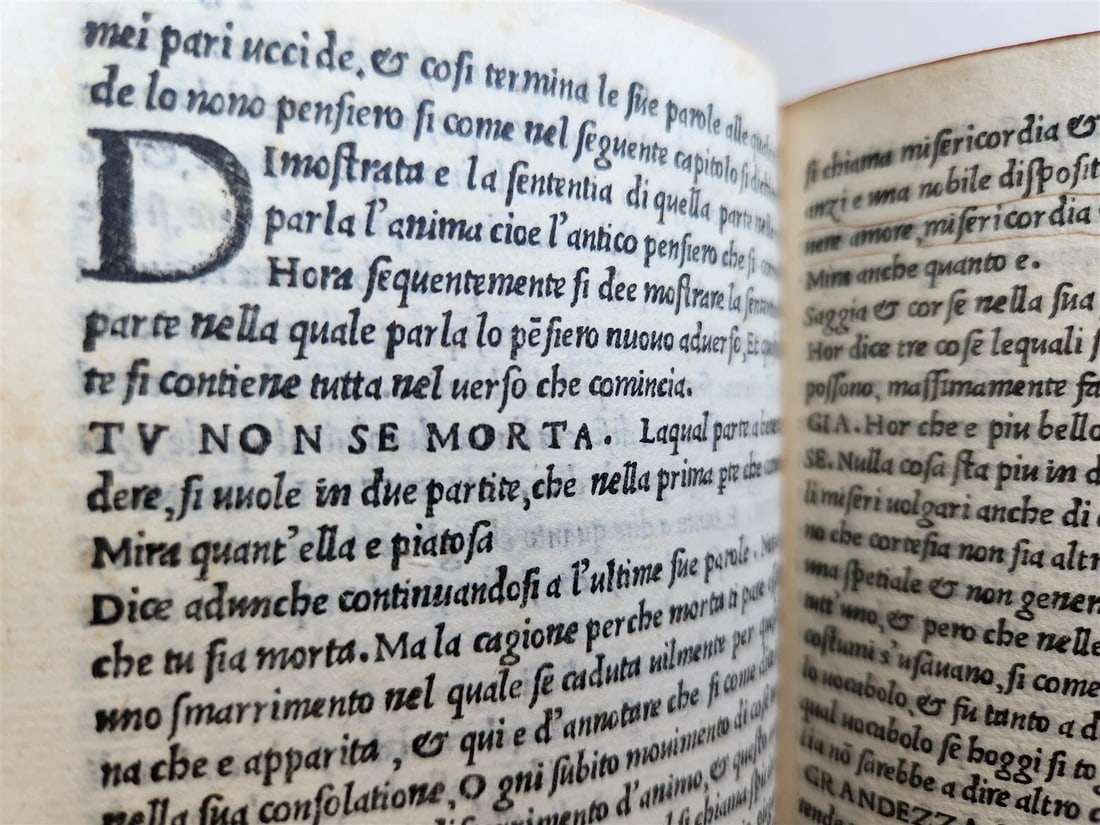 mei pari uccide, & coſi termina le ſue parole alle
de lo nono penſiero ſi come nel ſeguente capitolo ſi
DImoſtrata e la ſententia di quella parte
parla l'anima cioe l'antico penſiero che ſi
Hora ſequentemente ſi dee moſtrare la
parte nella quale parla lo pēſiero nuouo aduerſo, Et
te ſi contiene tutta nel uerſo che comincia.
TV NON SE MORTA. Laqual parte a
dere, ſi uuole in due partite, che nella prima pte che
Mira quant'ella e piatoſa
Dice adunche continuandoſi a l'ultime ſue parole.
che tu ſia morta. Ma la cagione perche morta ti pare
uno ſmarrimento nel quale ſe caduta uilmente per
na che e apparita, & qui e d'annotare che ſi come
nella ſua conſolatione, O gni ſubito mouimento di
d'animo, &
ſi chiama miſericordia &
anzi e una nobile diſpoſit
uere amore, miſericordia
Mira anche quanto e.
Saggia & corſe nella ſua
Hor dice tre coſe lequali
poſſono, maſſimamente fa
GIA. Hor che e piu bello
SE. Nulla coſa ſta piu in d
li miſeri uolgari anche di
na che corteſia non ſia altr
una ſpetiale & non gener
tutt'uno, & pero che nelle
coſtumi s'uſauano, ſi come
lo uocabolo, & fu tanto a d
qual uocabolo ſe hoggi ſi to
lia nō ſarebbe a dire altro c
GRANDEZZA